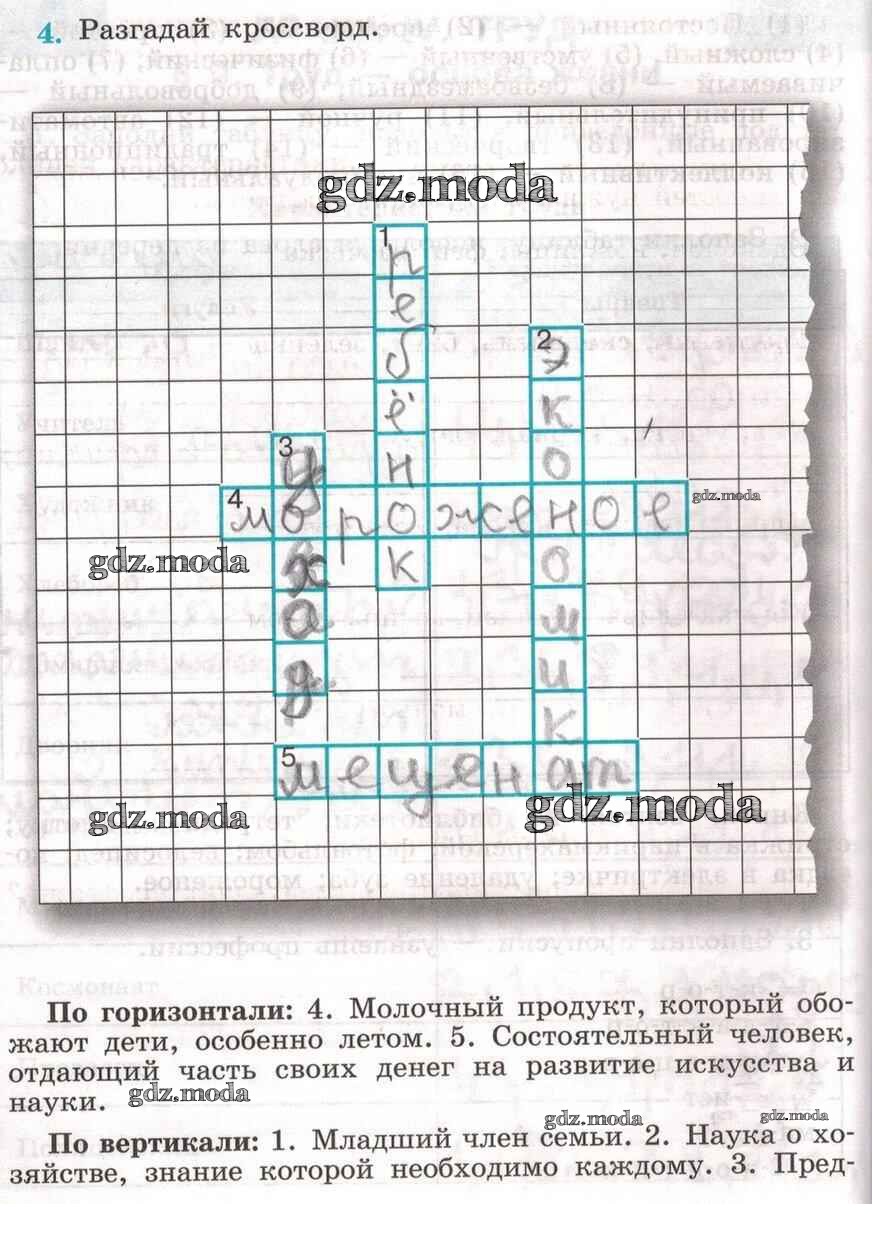 4. Разгадай кроссворд.
gdz.moda
1
р
е
б
ё
н
о
к
2
э
к
о
н
о
м
и
к
а
3
4
мороженое
gdz.moda
gdz.moda
5
меценат
gdz.moda
gdz.moda
По горизонтали: 4. Молочный продукт, который обо-
жают дети, особенно летом. 5. Состоятельный человек,
отдающий часть своих денег на развитие искусства и
науки. gdz.moda
gdz.moda
gdz.moda
По вертикали: 1. Младший член семьи. 2. Наука о хо-
зяйстве, знание которой необходимо каждому. 3. Пред-